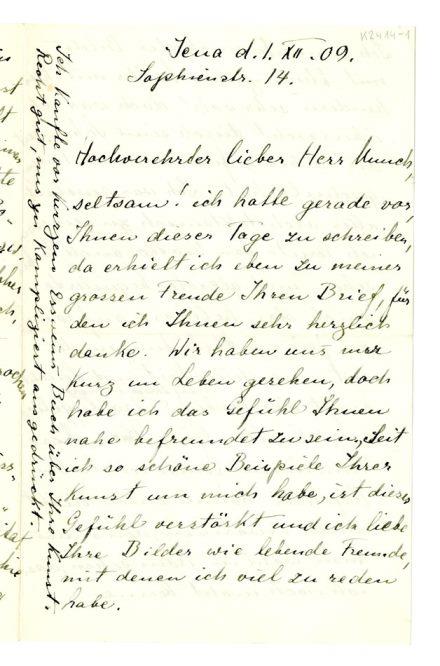 K2414-1
Jena d. 1. XII. 09.
Sophienstr. 14.
Hochverehrter lieber Herr Munch,
seltsam! ich hatte gerade vor,
Ihnen dieser Tage zu schreiben,
da erhielt ich eben zu meiner
grossen Freude Ihren Brief, für
den ich Ihnen sehr herzlich
danke. Wir haben uns nur
kurz im Leben gesehen, doch
habe ich das Gefühl Ihnen
nahe befreundet zu sein. Seit
ich so schöne Beispiele Ihrer
Kunst um mich habe, ist dieses
Gefühl verstärkt und ich liebe
Ihre Bilder wie lebende Freunde,
mit denen ich viel zu reden
habe.
Ich kaufte vor kurzem Buch über Ihre Kunst.
Recht gut, nur zu kompliziert ausgedrückt